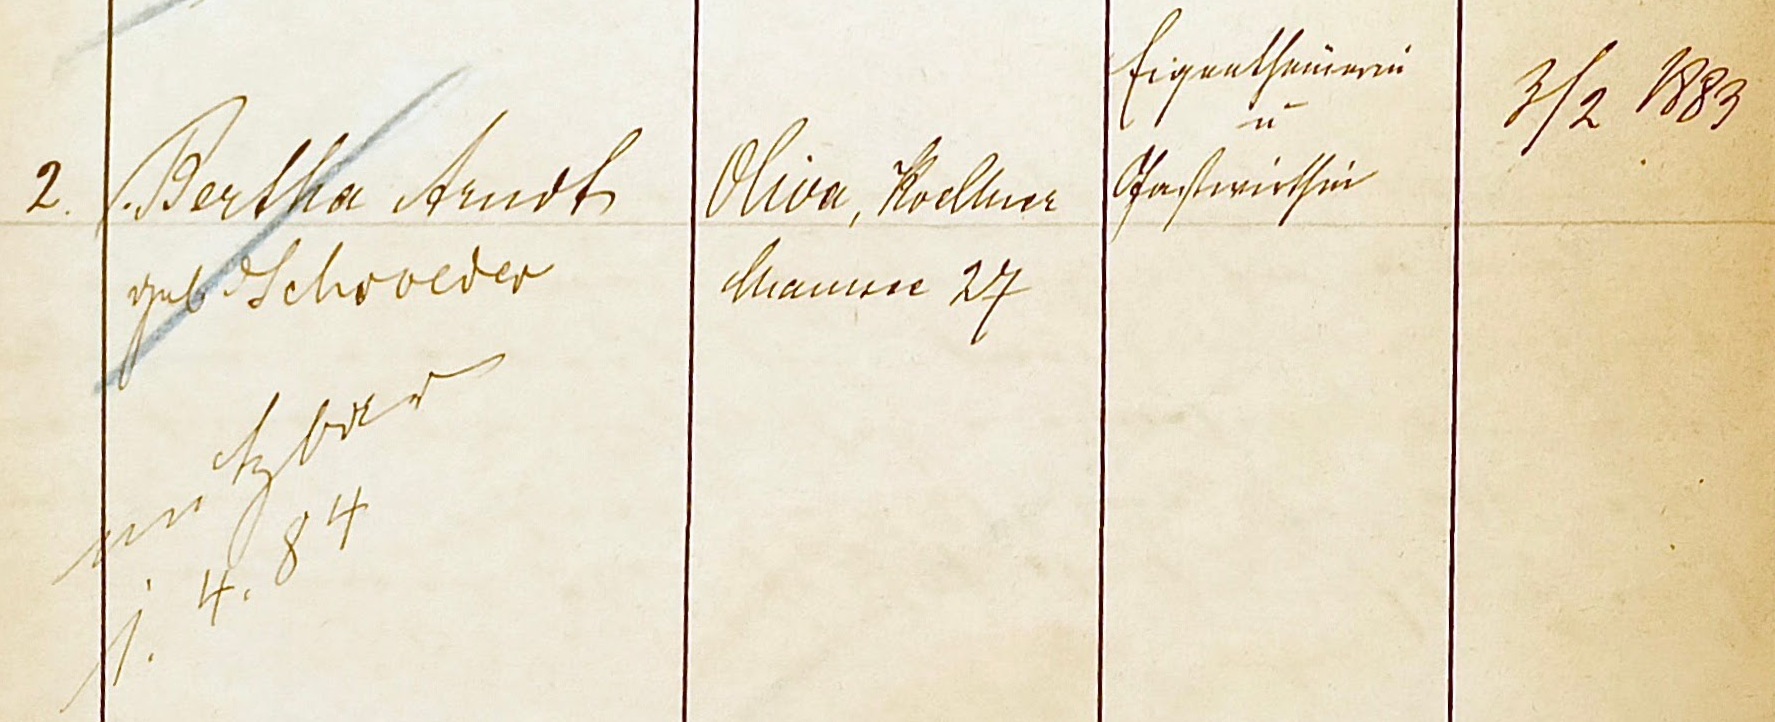 2. Bertha Arndt
geb Schroeder
Oliva, Koellner
Chaussee 27
Eigenthümerin
u
Gastwirthin
3/2 1883
1. 4. 84